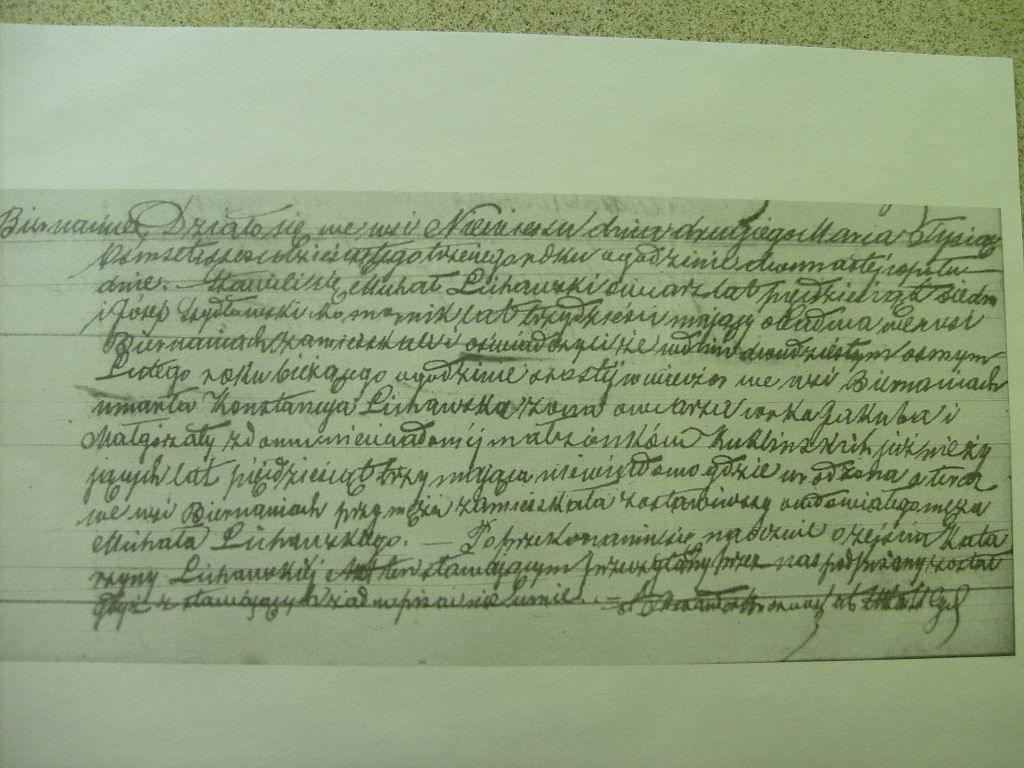 Biernacice Działo się we wsi Niewiesz dnia drugiego Marca Tysiąc
Osmset sześćdziesiątego trzeciego roku o godzinie dwunastej w połu
dnie. Stawili się Michał Lichawski owczarz lat pięćdziesiąt siedm
i Józef Szydłowski komornik lat trzydzieści mający obadwa we wsi
Biernaciach zamieszkali i oświadczyli że w dniu dwudziestym osmym
Lutego roku bieżącego o godzinie szostej w wieczor we wsi Biernaciach
umarła Konstancyja Lichawska żona owczarza corka Jakuba i
Małgorzaty z domu niewiadomej małżonków Kublinskich już nie ży
jących lat pięćdziesiąt trzy mająca niewiadomo gdzie urodzona a teraz
we wsi Biernaciach przy mężu zamieszkała zostawiwszy owdowiałego męża
Michała Lichawskiego. — Po przekonaniu się naocznie o zejściu Kata
rzyny Lichawskiej Akt ten stawającym przeczytany przez nas podpisany został
gdyż z stawających żad[en] pisać nie umie.